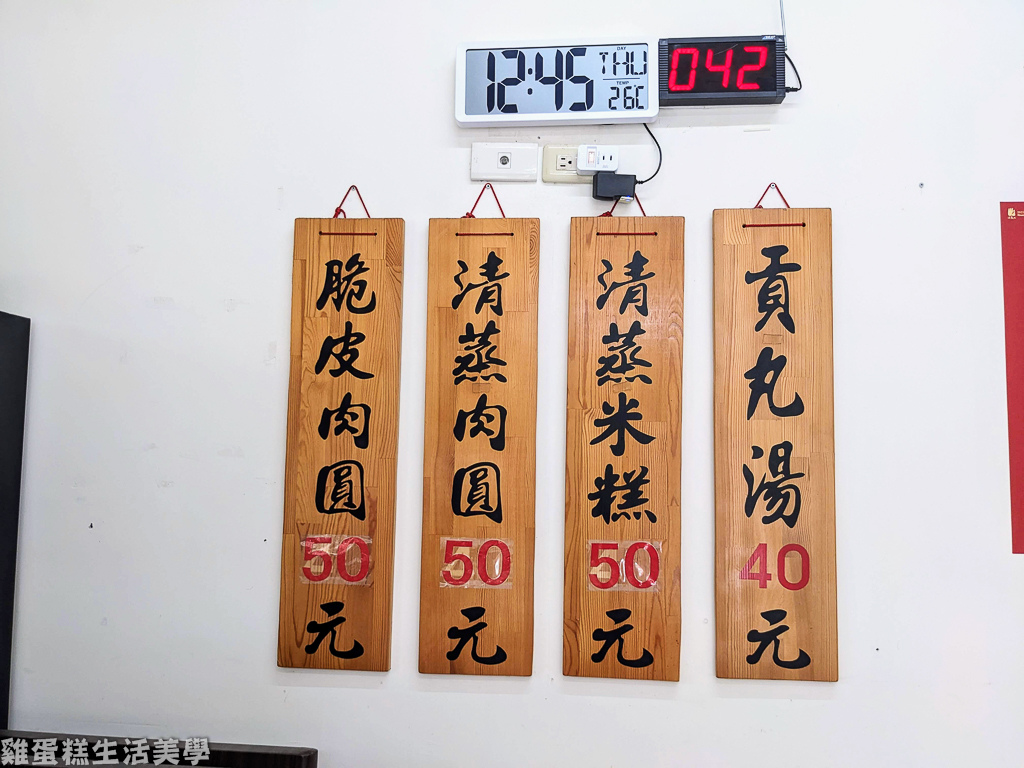 12:45
DAY
THU
TEMP
26℃
042
脆皮肉圓50元
清蒸肉圓50元
清蒸米糕50元
貢丸湯40元
雞蛋糕生活美學